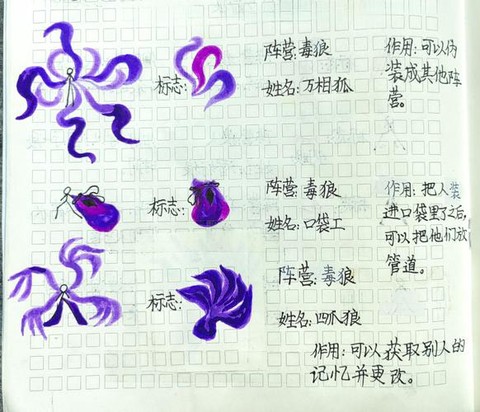 标志:
阵营:毒狼
姓名:万相狐
作用:可以伪
装成其他阵
营。
标志:
阵营:毒狼
姓名:口袋工
作用:把人装
进口袋里了之后,
可以把他们放
管道。
标志:
阵营:毒狼
姓名:四爪狼
作用:可以获取别人的
记忆并更改。